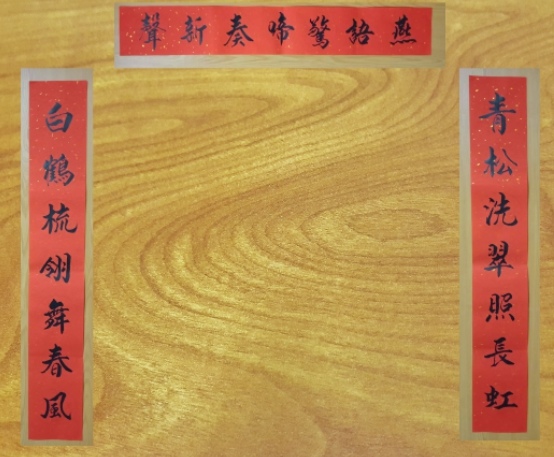 燕語驚啼奏新聲
青松洗翠照長虹
白鶴梳翎舞春風